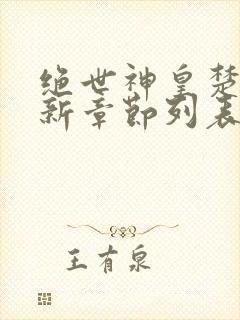 绝世神皇楚
新章节列表
王有泉